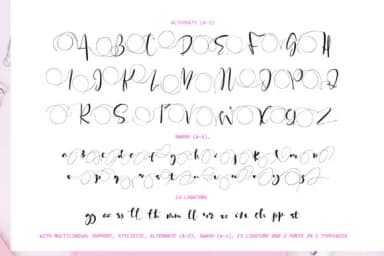 ALTERNATE (A-Z)
A B C D E F G H
I J K L M N O P Q
R S T V W X Y Z
SWASH (a-z),
a b c d e f g h i j k l m n
o p q r s t u v w x y z
13 LIGATURE
gg ss tt th mm ll ch pp st
WITH MULTILINGUAL SUPPORT, STYLISTIC, ALTERNATE (A-Z), SWASH (a-z), 13 LIGATURE AND 2 FONTS IN 1 TYPEFACE